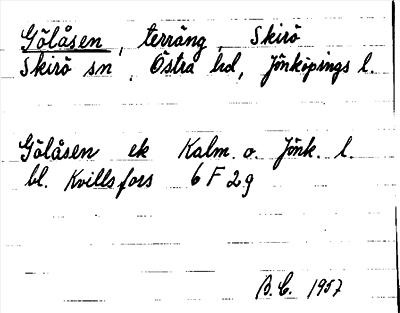 Gölåsen, terräng, Skirö
Skirö sn, Östra hd, Jönköpings l.
Gölåsen ek Kalm. o. Jönk. l.
bl. Kvillsfors 6 F 2 g
B. C. 1957